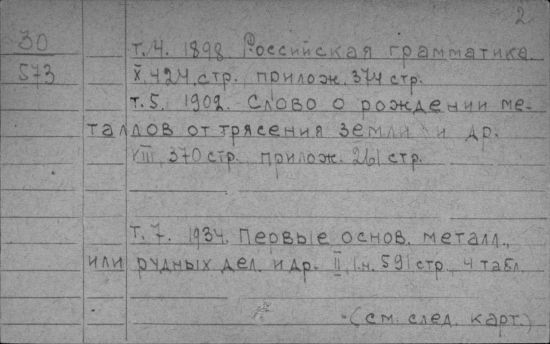 2
30
573
т. 4. 1898 Российская грамматика.
X, 424, стр. прилож. 374 стр.
т. 5. 1902. Слово о рождении ме-
таллов от трясения земли и др.
VIII, 370 стр. прилож. 261 стр.
т. 7. 1934. Первые основ. металл.,
или рудных дел. и др. II, 1.н. 591 стр. 4 табл.
(см. след. карт.)